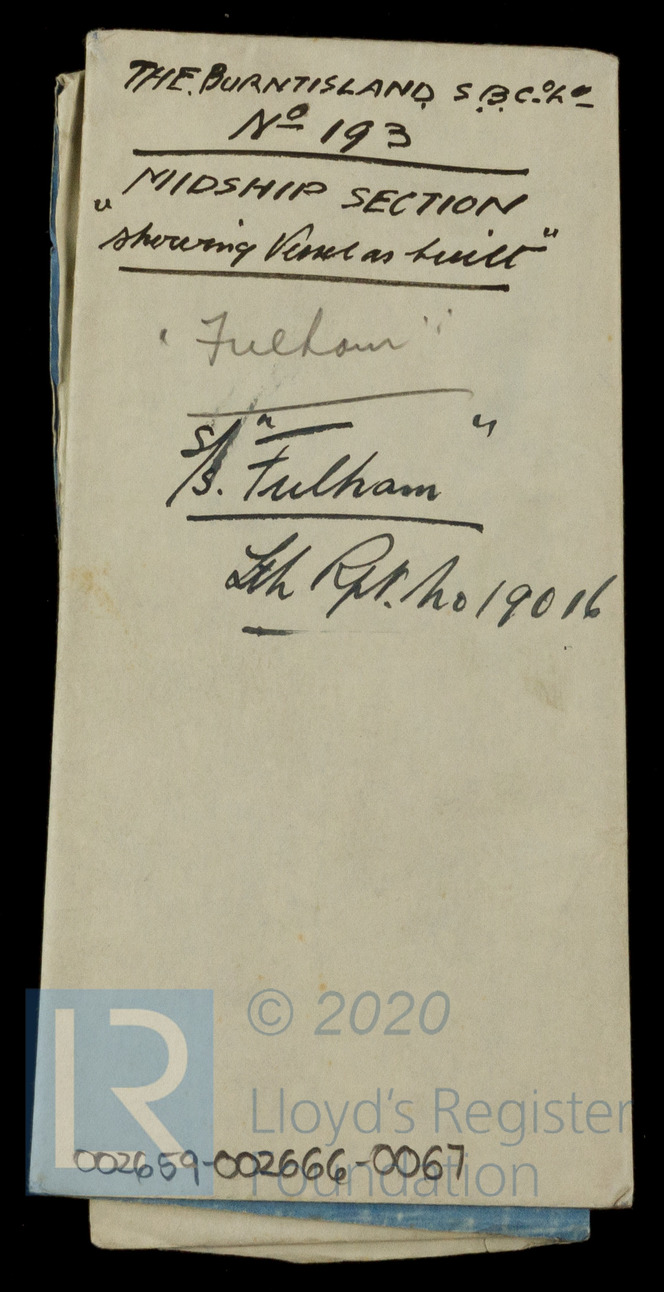 THE BURNTISLAND S.B. Co. Ld
No 193
MIDSHIP SECTION
"showing Vessel as built"
"Fulham"
S/S. "Fulham"
Lth Rpt. No 19016
© 2020
LR
Lloyd's Register
Foundation
002659-002666-0067